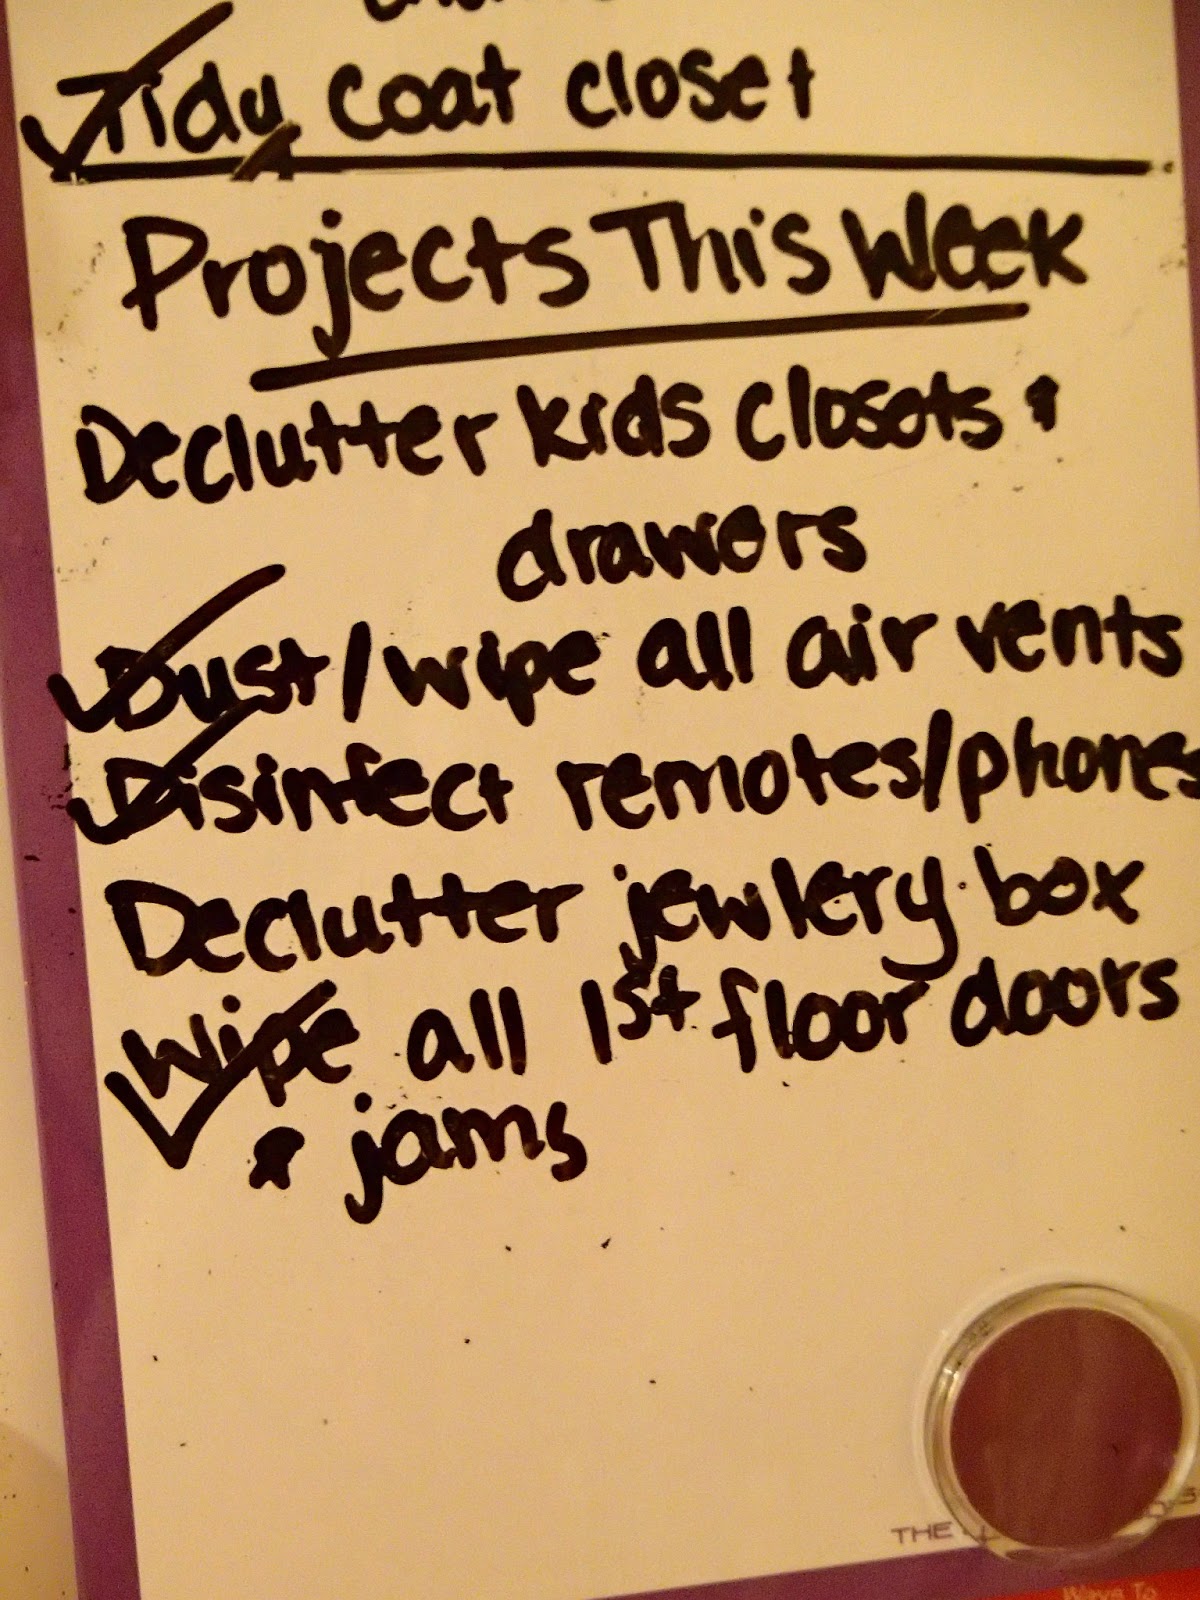 Tidy coat closet
Projects This Week
Declutter kids closets &
drawers
Dust/wipe all air vents
Disinfect remotes/phones
Declutter jewlery box
Wipe all 1st floor doors
& jams
THE
Ways To